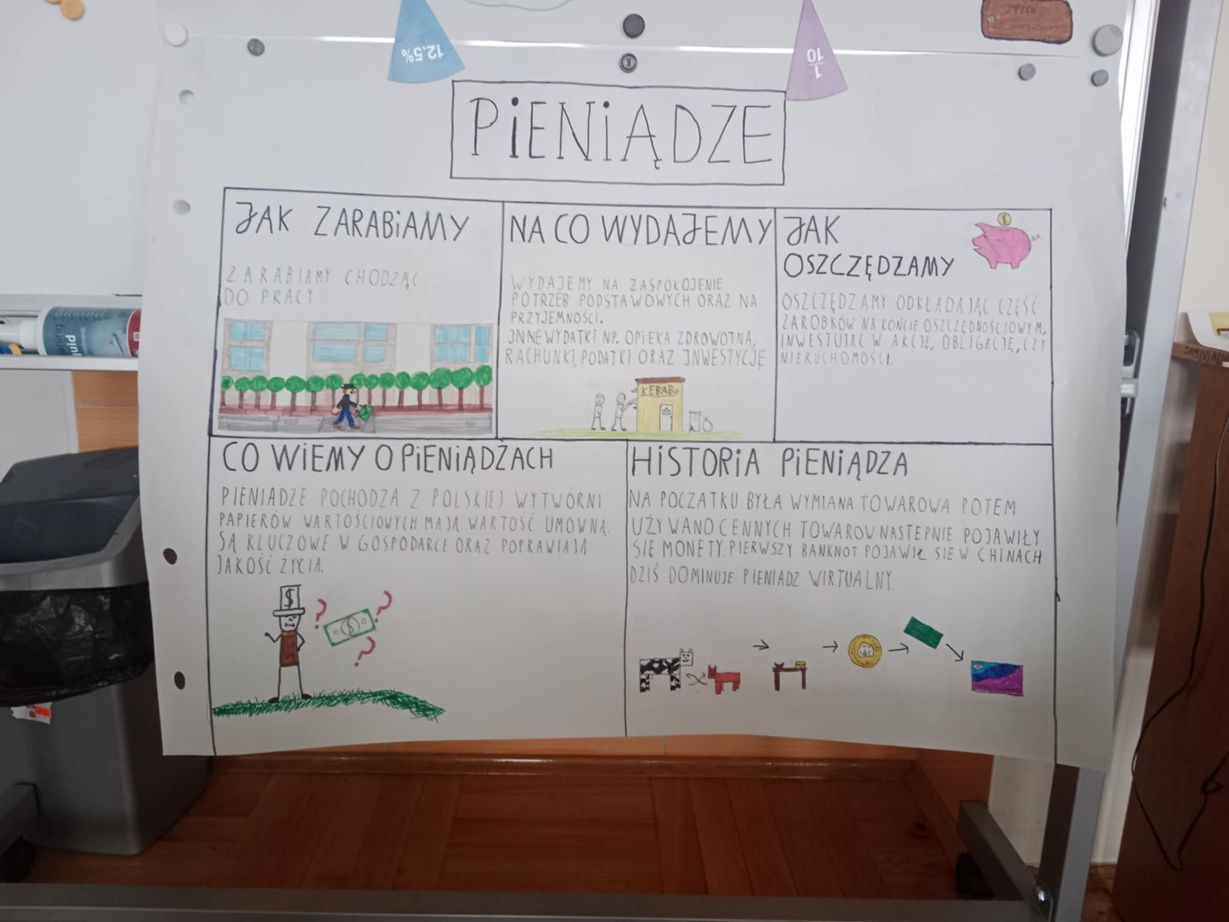 12.5%
1
10
PiENiĄDZE
JAK ZARABiAMY
ZARABIAMY CHODZĄC
DO PRACY
NA CO WYDAJEMY
WYDAJEMY NA ZASPOKOJENIE
POTRZEB PODSTAWOWYCH ORAZ NA
PRZYJEMNOŚCI.
INNE WYDATKI NP. OPIEKA ZDROWOTNA,
RACHUNKI, PODATKI ORAZ INWESTYCJĘ
KEBAB
JAK
OSZCZĘDZAMY
$
OSZCZĘDZAMY ODKŁADAJĄC CZĘŚĆ
ZAROBKÓW NA KONCIE OSZCZĘDNOŚCIOWYM,
INWESTUJĄC W AKCJE, OBLIGACJĘ, CZY
NIERUCHOMOŚCI.
CO WiEMY O PiENiĄDZACH
PIENIADZE POCHODZA Z POLSKIEJ WYTWÓRNI
PAPIERÓW WARTOŚCIOWYCH MAJĄ WARTOŚĆ UMOWNĄ.
SĄ KLUCZOWE W GOSPODARCE ORAZ POPRAWIAJĄ
JAKOŚĆ ŻYCIA.
$
? $ ?
?
HiSTORIA PiENIĄDZA
NA POCZATKU BYŁA WYMIANA TOWAROWA POTEM
UŻYWANO CENNYCH TOWARÓW NASTEPNIE POJAWIŁY
SIĘ MONETY. PIERWSZY BANKNOT POJAWIŁ SIE W CHINACH
DZIŚ DOMINUJE PIENIADZ WIRTUALNY.